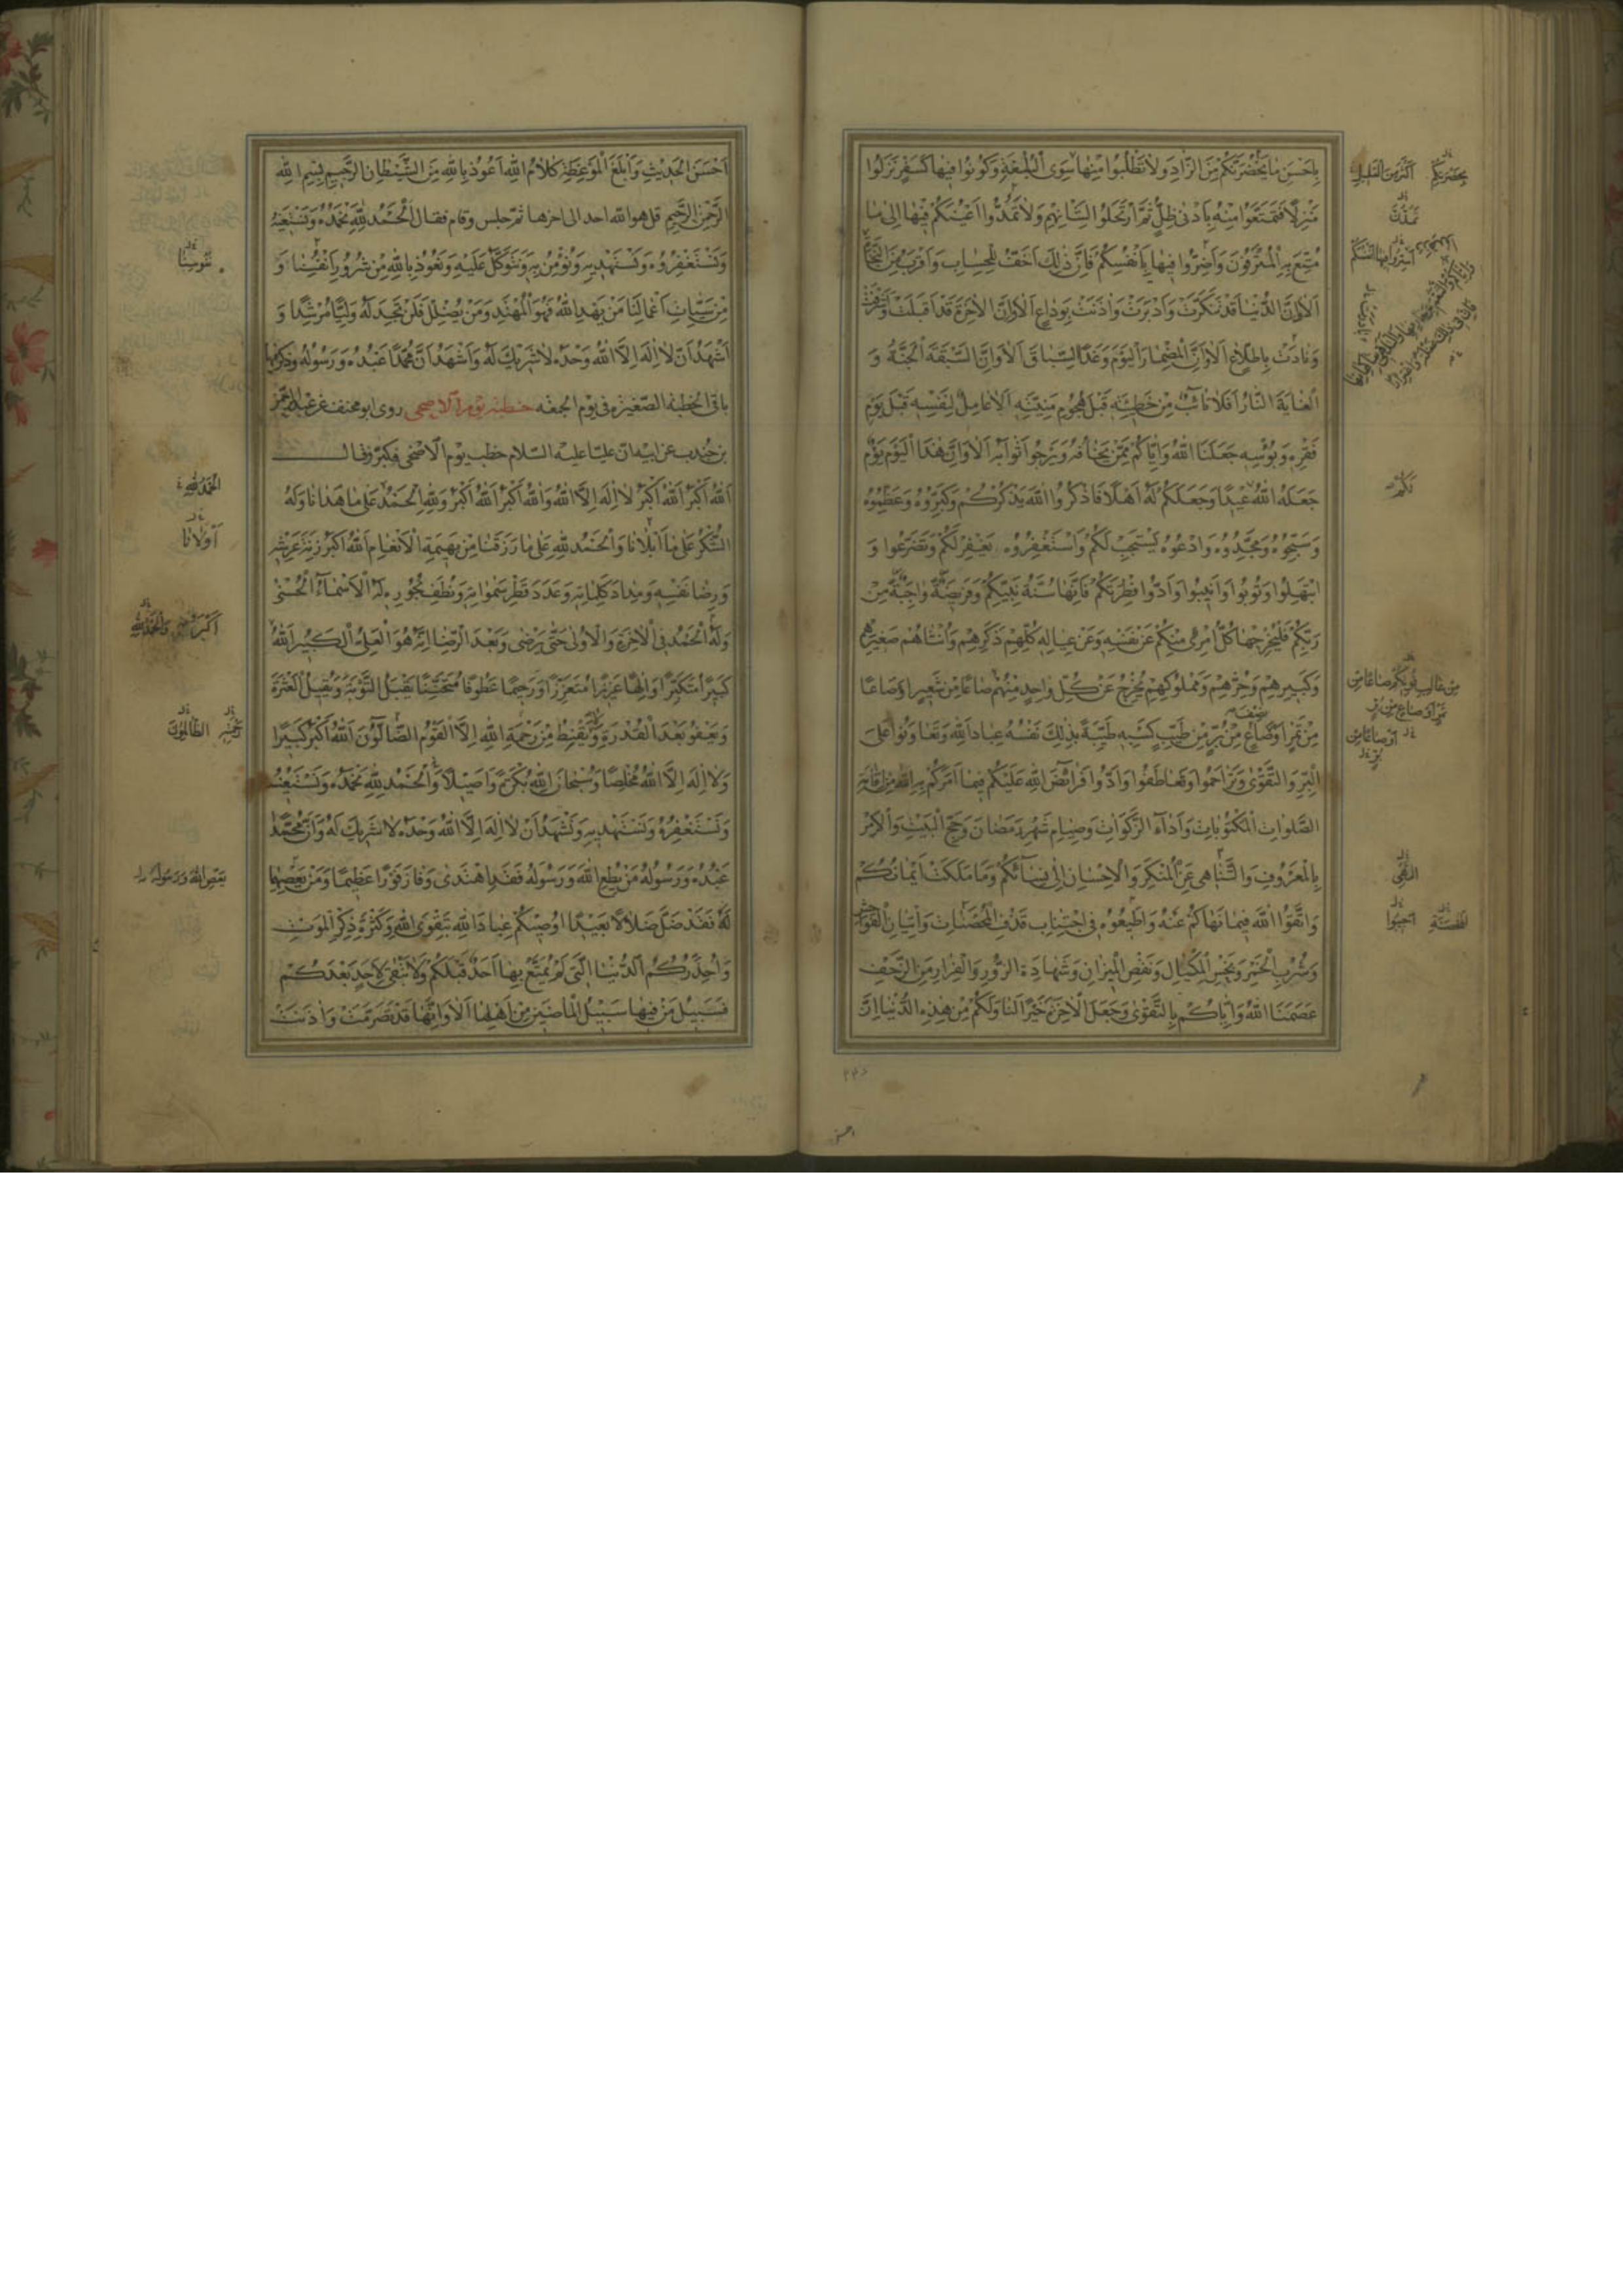 بِاَحْسَنِ مَا يَحْضُرَنَّكُمْ مِنَ الزَّادِ وَلَا تَطْلُبُوا مِنْهَا سِوَى الْبُلْغَةِ وَكُونُوا فِيهَا كَسَفْرٍ نَزَلُوا
مَنْزِلًا فَتَمَتَّعُوا مِنْهُ بِاَدْنٰى ظِلٍّ ثُمَّ ارْتَحَلُوا لِشَأْنِهِمْ وَلَا تَمُدُّوا اَعْيُنَكُمْ فِيهَا اِلٰى مَا
مُتِّعَ بِهِ الْمُتْرَفُونَ وَاَضِرُّوا فِيهَا بِاَنْفُسِكُمْ فَاِنَّ ذٰلِكَ اَخَفُّ لِلْحِسَابِ وَاَقْرَبُ مِنَ النَّجَاةِ
اَلَا اِنَّ الدُّنْيَا قَدْ تَنَكَّرَتْ وَاَدْبَرَتْ وَاٰذَنَتْ بِوَدَاعٍ اَلَا وَاِنَّ الْاٰخِرَةَ قَدْ اَقْبَلَتْ وَاَشْرَفَتْ
وَنَادَتْ بِاطِّلَاعٍ اَلَا وَاِنَّ الْمِضْمَارَ الْيَوْمَ وَغَدًا السِّبَاقَ اَلَا وَاِنَّ السَّبَقَةَ الْجَنَّةُ وَ
الْغَايَةَ النَّارُ اَفَلَا تَائِبٌ مِنْ خَطِيئَتِهِ قَبْلَ هُجُومِ مَنِيَّتِهِ اَلَا عَامِلٌ لِنَفْسِهِ قَبْلَ يَوْمِ
فَقْرِهِ وَبُؤْسِهِ جَعَلَنَا اللهُ وَاِيَّاكُمْ مِمَّنْ يَخَافُهُ وَيَرْجُوا ثَوَابَهُ اَلَا وَاِنَّ هٰذَا الْيَوْمَ يَوْمٌ
جَعَلَهُ اللهُ عِيدًا وَجَعَلَكُمْ لَهُ اَهْلًا فَاذْكُرُوا اللهَ يَذْكُرْكُمْ وَكَبِّرُوهُ وَعَظِّمُوهُ
وَسَبِّحُوهُ وَمَجِّدُوهُ وَادْعُوهُ يَسْتَجِبْ لَكُمْ وَاسْتَغْفِرُوهُ يَغْفِرْ لَكُمْ وَتَضَرَّعُوا وَ
ابْتَهِلُوا وَتُوبُوا وَاَنِيبُوا وَاَدُّوا فِطْرَتَكُمْ فَاِنَّهَا سُنَّةُ نَبِيِّكُمْ وَفَرِيضَةٌ وَاجِبَةٌ مِنْ
رَبِّكُمْ فَلْيُخْرِجْهَا كُلُّ امْرِئٍ مِنْكُمْ عَنْ نَفْسِهِ وَعَنْ عِيَالِهِ كُلِّهِمْ ذَكَرِهِمْ وَاُنْثَاهُمْ صَغِيرِهِمْ
وَكَبِيرِهِمْ وَحُرِّهِمْ وَمَمْلُوكِهِمْ يُخْرِجُ عَنْ كُلِّ وَاحِدٍ مِنْهُمْ صَاعًا مِنْ شَعِيرٍ اَوْ صَاعًا
مِنْ تَمْرٍ اَوْ صَاعٍ مِنْ بُرٍّ مِنْ طَيِّبِ كَسْبِهِ طَيِّبَةً بِذٰلِكَ نَفْسُهُ عِبَادَ اللهِ وَتَعَاوَنُوا عَلَى
الْبِرِّ وَالتَّقْوٰى وَتَرَاحَمُوا وَتَعَاطَفُوا وَاَدُّوا فَرَائِضَ اللهِ عَلَيْكُمْ فِيمَا اَمَرَكُمْ بِهِ اللهُ مِنْ اِقَامَةِ
الصَّلَوَاتِ الْمَكْتُوبَاتِ وَاَدَاءِ الزَّكَوَاتِ وَصِيَامِ شَهْرِ رَمَضَانَ وَحَجِّ الْبَيْتِ وَالْاَمْرِ
بِالْمَعْرُوفِ وَالتَّنَاهِي عَنِ الْمُنْكَرِ وَالْاِحْسَانِ اِلٰى نِسَائِكُمْ وَمَا مَلَكَتْ اَيْمَانُكُمْ
وَاتَّقُوا اللهَ فِيمَا نَهَاكُمْ عَنْهُ وَاَطِيعُوهُ فِي اجْتِنَابِ قَذْفِ الْمُحْصَنَاتِ وَاِتْيَانِ الْفَوَاحِشِ
وَشُرْبِ الْخَمْرِ وَبَخْسِ الْمِكْيَالِ وَنَقْصِ الْمِيزَانِ وَشَهَادَةِ الزُّورِ وَالْفِرَارِ مِنَ الزَّحْفِ
عَصَمَنَا اللهُ وَاِيَّاكُمْ بِالتَّقْوٰى وَجَعَلَ الْاٰخِرَةَ خَيْرًا لَنَا وَلَكُمْ مِنْ هٰذِهِ الدُّنْيَا اِنَّ
بِحَضْرَتِكُمْ اَكْثَرَ مِنَ الْقَلِيلِ
مِنْ غَالِبِ قُوتِكُمْ صَاعًا مِنْ
تَمْرٍ اَوْ صَاعٍ مِنْ بُرٍّ
اَوْ صَاعًا مِنْ
بُرٍّ
اَحْسَنَ الْحَدِيثِ وَاَبْلَغَ الْمَوْعِظَةِ كَلَامُ اللهِ اَعُوذُ بِاللهِ مِنَ الشَّيْطَانِ الرَّجِيمِ بِسْمِ اللهِ
الرَّحْمٰنِ الرَّحِيمِ قل هو الله احد الى اخرها ثم جلس وقام فقال اَلْحَمْدُ لِلّٰهِ نَحْمَدُهُ وَنَسْتَعِينُهُ
وَنَسْتَغْفِرُهُ وَنَسْتَهْدِيهِ وَنُؤْمِنُ بِهِ وَنَتَوَكَّلُ عَلَيْهِ وَنَعُوذُ بِاللهِ مِنْ شُرُورِ اَنْفُسِنَا وَ
مِنْ سَيِّئَاتِ اَعْمَالِنَا مَنْ يَهْدِ اللهُ فَهُوَ الْمُهْتَدِ وَمَنْ يُضْلِلْ فَلَنْ تَجِدَ لَهُ وَلِيًّا مُرْشِدًا وَ
اَشْهَدُ اَنْ لَا اِلٰهَ اِلَّا اللهُ وَحْدَهُ لَا شَرِيكَ لَهُ وَاَشْهَدُ اَنَّ مُحَمَّدًا عَبْدُهُ وَرَسُولُهُ وذكر
باقى الخطبة الصغيرة فى يوم الجمعه خطبته يوم الاضحى روى ابو مخنف عن عبد الرحمن
بن جندب عن ابيه ان عليا عليه السلام خطب يوم الاضحى فكبر وقال
اَللهُ اَكْبَرُ اَللهُ اَكْبَرُ لَا اِلٰهَ اِلَّا اللهُ وَاللهُ اَكْبَرُ اَللهُ اَكْبَرُ وَلِلّٰهِ الْحَمْدُ عَلٰى مَا هَدَانَا وَلَهُ
الشُّكْرُ عَلٰى مَا اَبْلَانَا وَالْحَمْدُ لِلّٰهِ عَلٰى مَا رَزَقَنَا مِنْ بَهِيمَةِ الْاَنْعَامِ اَللهُ اَكْبَرُ زِنَةَ عَرْشِهِ
وَرِضَا نَفْسِهِ وَمِدَادَ كَلِمَاتِهِ وَعَدَدَ قَطْرِ سَمٰوَاتِهِ وَنُطَفِ بُحُورِهِ لَهُ الْاَسْمَاءُ الْحُسْنٰى
وَلَهُ الْحَمْدُ فِي الْاٰخِرَةِ وَالْاُولٰى حَتّٰى يَرْضٰى وَبَعْدَ الرِّضَا اِنَّهُ هُوَ الْعَلِيُّ الْكَبِيرُ اَللهُ
كَبِيرًا مُتَكَبِّرًا وَاِلٰهًا عَزِيزًا مُتَعَزِّزًا وَرَحِيمًا عَطُوفًا مُتَحَنِّنًا يَقْبَلُ التَّوْبَةَ وَيُقِيلُ الْعَثْرَةَ
وَيَعْفُو بَعْدَ الْقُدْرَةِ وَلَا يَقْنَطُ مِنْ رَحْمَةِ اللهِ اِلَّا الْقَوْمُ الضَّالُّونَ اَللهُ اَكْبَرُ كَبِيرًا
وَلَا اِلٰهَ اِلَّا اللهُ مُخْلِصًا وَسُبْحَانَ اللهِ بُكْرَةً وَاَصِيلًا وَالْحَمْدُ لِلّٰهِ نَحْمَدُهُ وَنَسْتَعِينُهُ
وَنَسْتَغْفِرُهُ وَنَسْتَهْدِيهِ وَنَشْهَدُ اَنْ لَا اِلٰهَ اِلَّا اللهُ وَحْدَهُ لَا شَرِيكَ لَهُ وَاَنَّ مُحَمَّدًا
عَبْدُهُ وَرَسُولُهُ مَنْ يُطِعِ اللهَ وَرَسُولَهُ فَقَدِ اهْتَدٰى وَفَازَ فَوْزًا عَظِيمًا وَمَنْ يَعْصِهِمَا
فَقَدْ ضَلَّ ضَلَالًا بَعِيدًا اُوصِيكُمْ عِبَادَ اللهِ بِتَقْوَى اللهِ وَكَثْرَةِ ذِكْرِ الْمَوْتِ
وَاُحَذِّرُكُمُ الدُّنْيَا الَّتِي لَمْ يُمَتَّعْ بِهَا اَحَدٌ قَبْلَكُمْ وَلَا تَبْقٰى لِاَحَدٍ بَعْدَكُمْ
فَسَبِيلُ مَنْ فِيهَا سَبِيلُ الْمَاضِينَ مِنْ اَهْلِهَا اَلَا وَاِنَّهَا قَدْ تَصَرَّمَتْ وَاٰذَنَتْ
الْحَمْدُ لِلّٰهِ
اَوْلَانَا
الظَّالِمُونَ
يَعْصِ اللهَ وَرَسُولَهُ